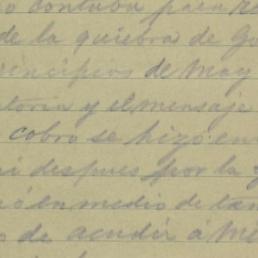 contaba para
de la quiebra de Go
rincipios de May
toria y el mensaje
cobro se hizo en
i despues por la
ó en medio de
o de acudir á Me